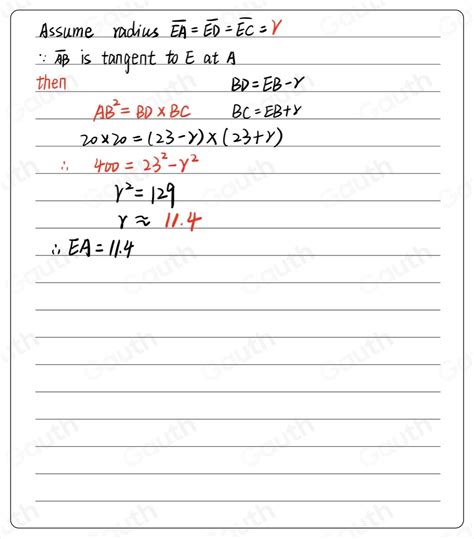 Assume radius EA = ED = EC = r
∵ AB is tangent to E at A
then BD = EB - r
AB² = BD × BC BC = EB + r
20 × 20 = (23 - r) × (23 + r)
∴ 400 = 23² - r²
r² = 129
r ≈ 11.4
∴ EA = 11.4
Gauth